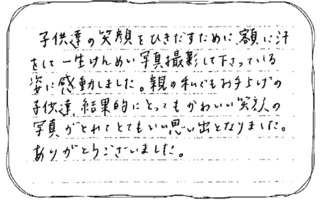 子供達の笑顔をひきだすために額に汗
をして一生けんめい写真撮影して下さっている
姿に感動しました。親の私でもお手上げの
子供達、結果的にとってもかわいい笑顔の
写真がとれてとてもいい思い出となりました。
ありがとうございました。